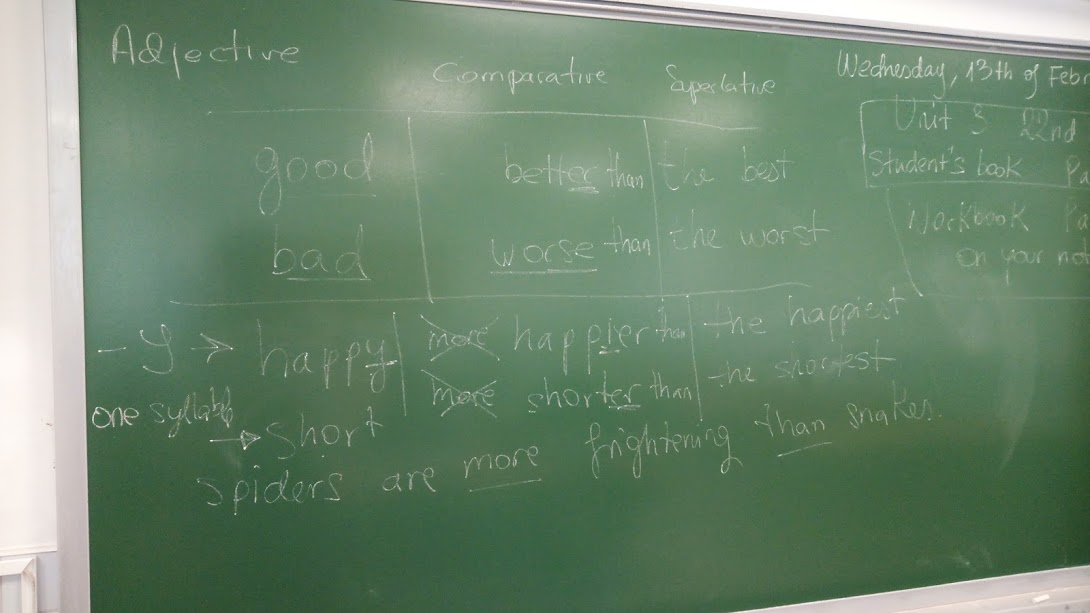 Adjective Comparative Superlative
good better than the best
bad worse than the worst
- y → happy more happier than the happiest
one syllab → short more shorter than the shortest
spiders are more frightening than snakes.
Wednesday, 13th of Febr
Unit 3 22nd
Student's book Pa
Workbook Pa
on your not